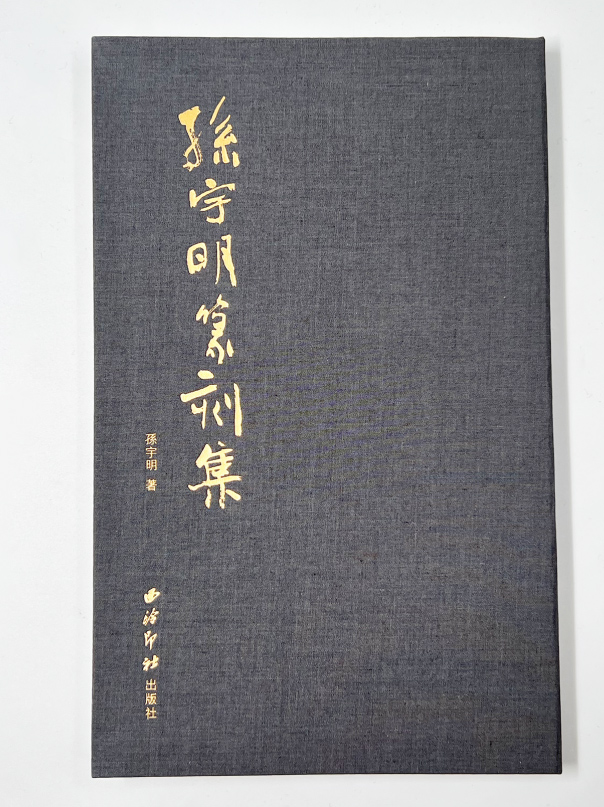 孫宇明篆刻集
孫宇明 著
西泠印社出版社